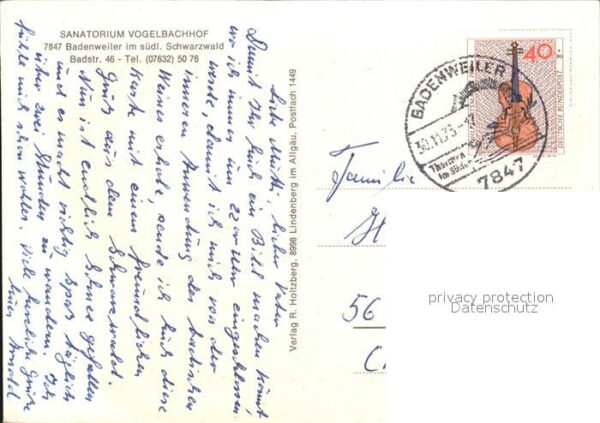 SANATORIUM VOGELBACHHOF
7847 Badenweiler im südl. Schwarzwald
Badstr. 46 - Tel. (07632) 50 76
Liebe Mutti, lieber Vater
Damit Ihr Euch ein Bild machen könnt,
wo ich immer um 22 00 Uhr eingeschlossen
werde, damit ich mich von der
inneren Anwendung des badischen
Weines erhole, sende ich Euch diese
Karte mit einem freundlichen
Gruß aus dem Schwarzwald.
Nun ist endlich Schnee gefallen
und es macht richtig Spaß täglich
über zwei Stunden zu wandern. Ich
fühle mich sehr wohl. Viele herzliche Grüße
Euer
Verlag R. Holtzberg, 8998 Lindenberg im Allgäu, Postfach 1449
40
DEUTSCHE BUNDESPOST
BADENWEILER
30.11.73-17
Thermen
im Süden
7847
Familie
H
56
privacy protection
Datenschutz